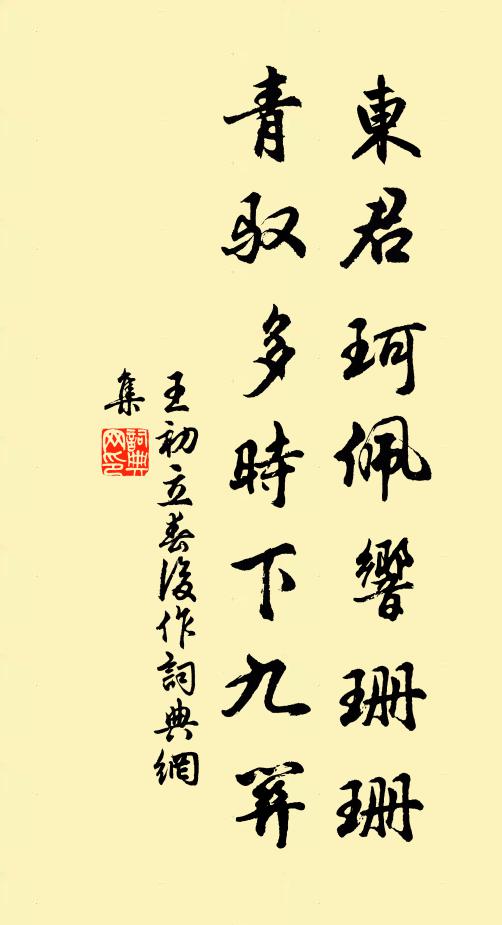 東君珂佩響珊珊
青馭多時下九關
王初立春後作詞典網
集
詞典
网印